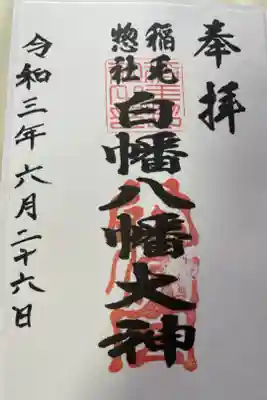 奉拝
稲毛
惣社
白幡八幡大神
令和三年六月二十六日